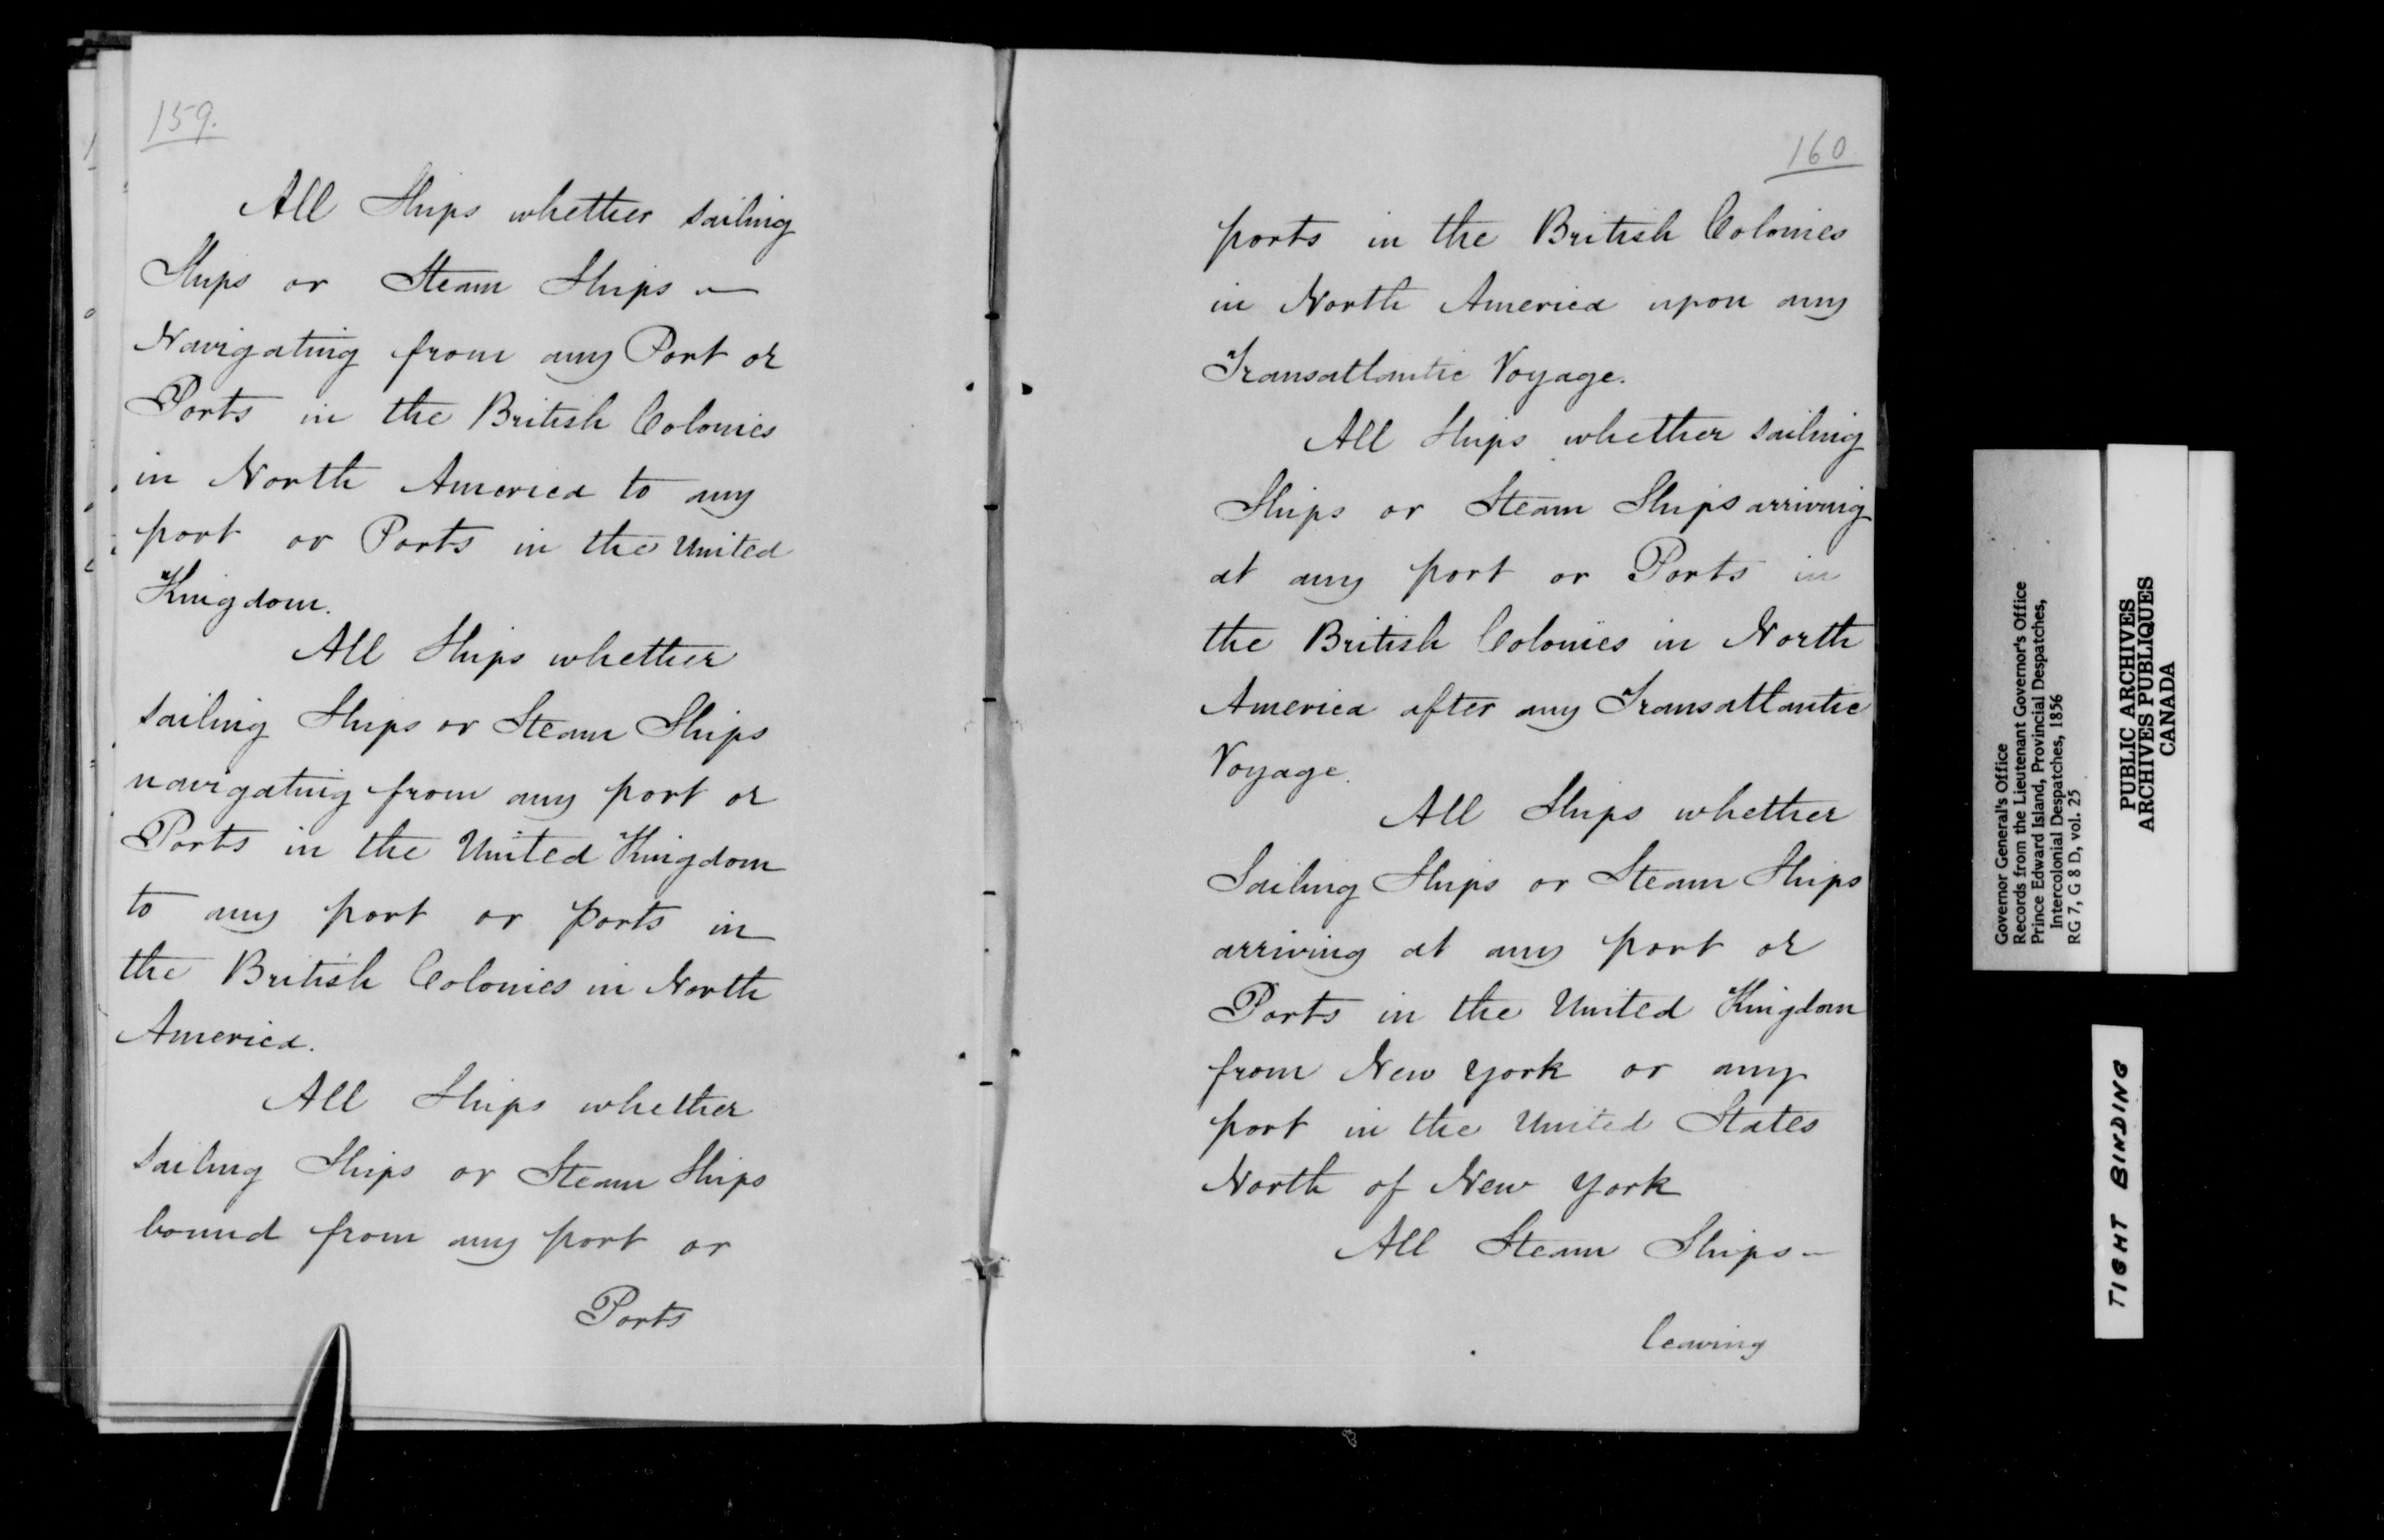 159.
All Ships whether sailing
Ships or Steam Ships —
Navigating from any Port or
Ports in the British Colonies
in North America to any
port or Ports in the United
Kingdom.
All Ships whether
sailing Ships or Steam Ships
navigating from any port or
Ports in the United Kingdom
to any port or ports in
the British Colonies in North
America.
All Ships whether
sailing Ships or Steam Ships
bound from any port or
Ports
160
ports in the British Colonies
in North America upon any
Transatlantic Voyage.
All Ships whether sailing
Ships or Steam Ships arriving
at any port or Ports in
the British Colonies in North
America after any Transatlantic
Voyage.
All Ships whether
Sailing Ships or Steam Ships
arriving at any port or
Ports in the United Kingdom
from New York or any
port in the United States
North of New York
All Steam Ships —
leaving
Governor General's Office
Records from the Lieutenant Governor's Office
Prince Edward Island, Provincial Despatches,
Intercolonial Despatches, 1856
RG 7, G 8 D, vol. 25
PUBLIC ARCHIVES
ARCHIVES PUBLIQUES
CANADA
TIGHT BINDING